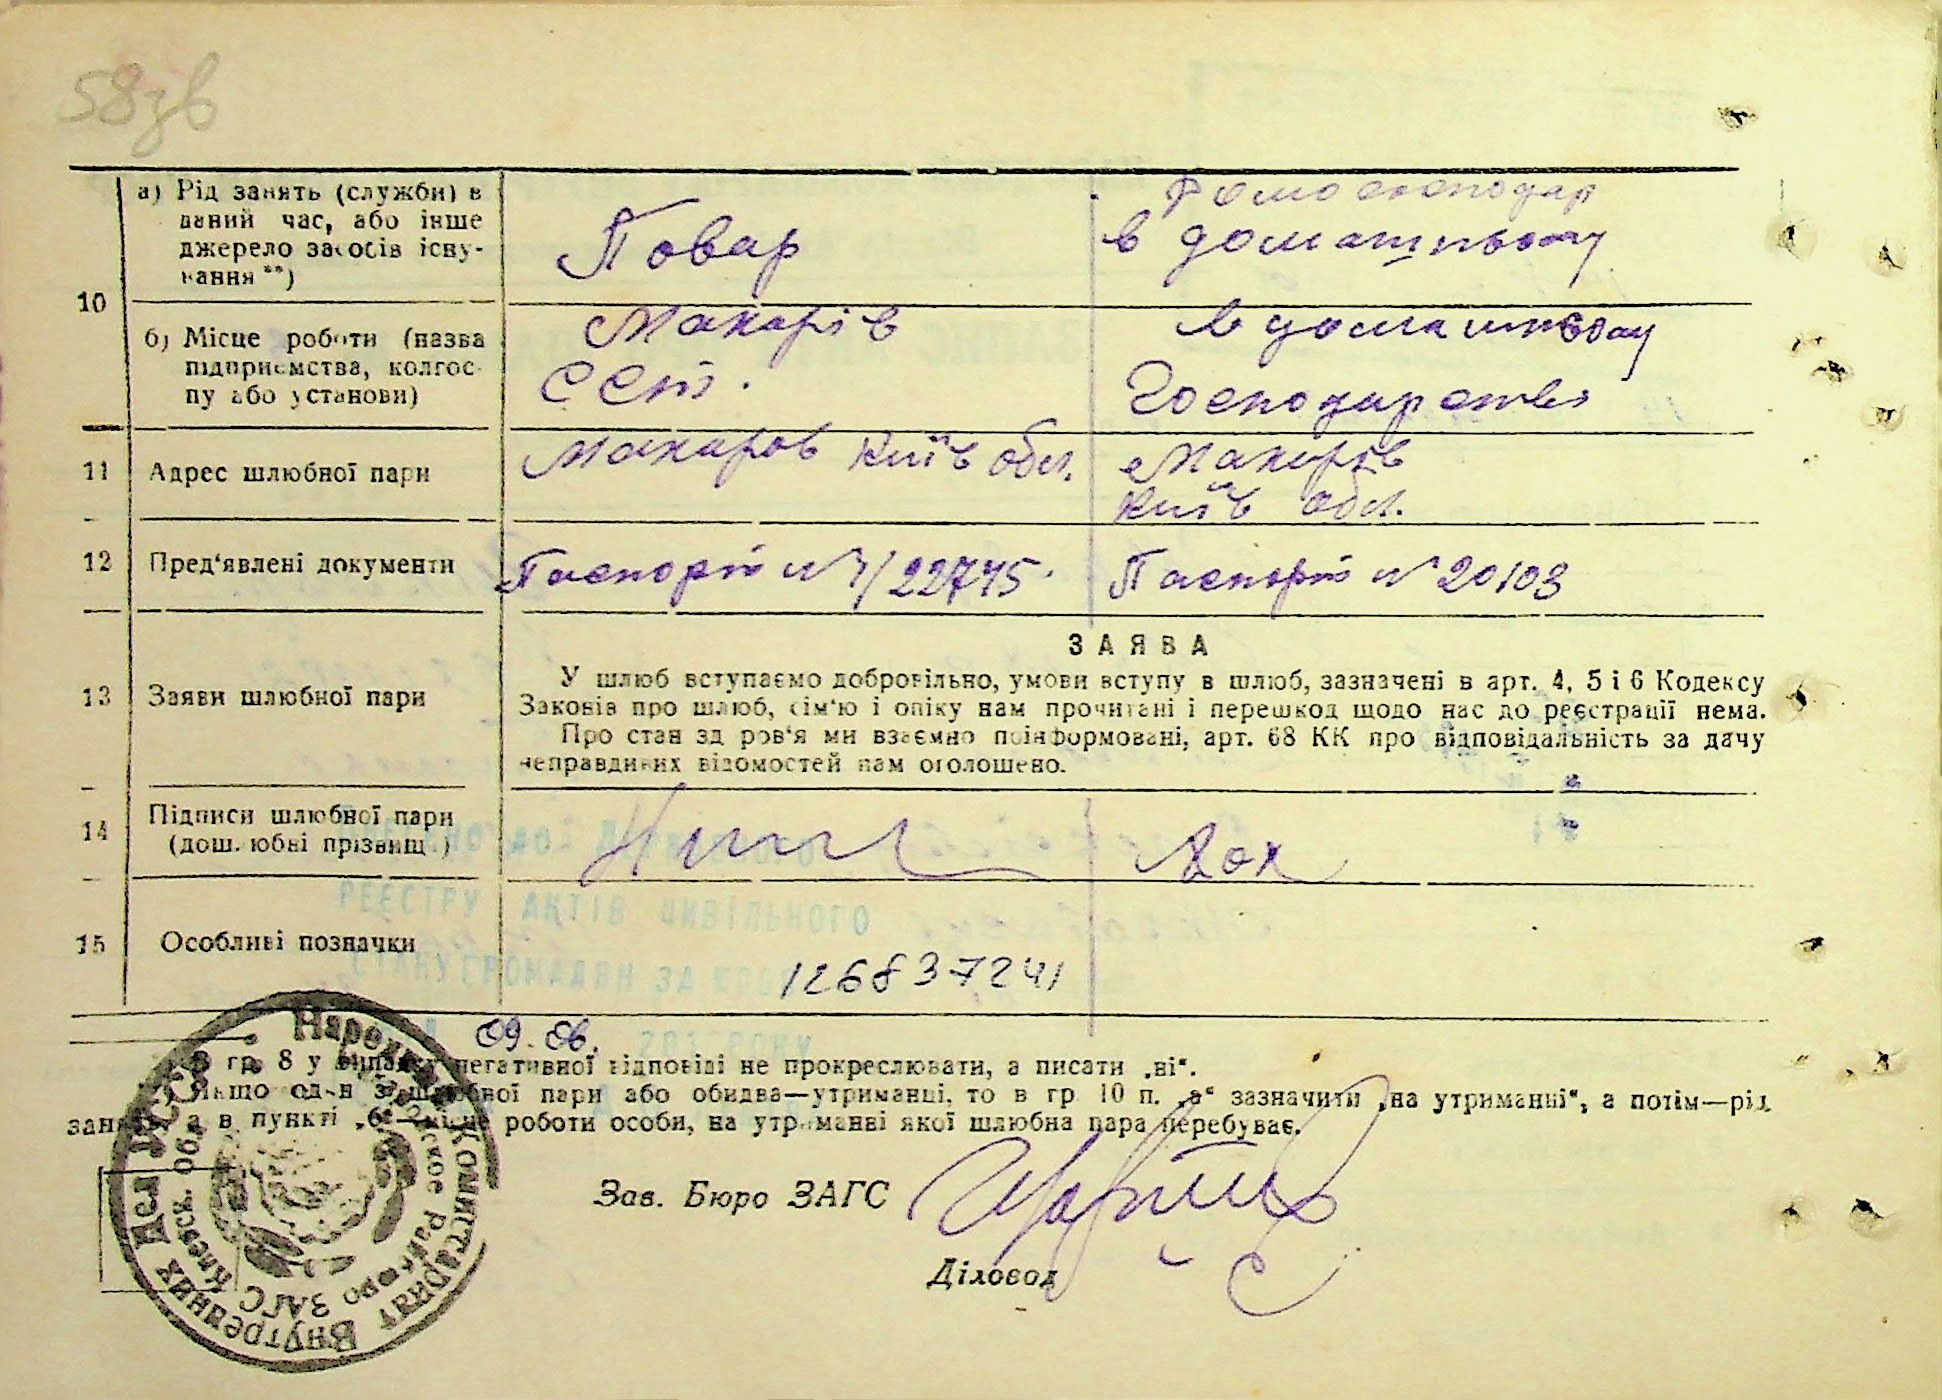 58зв
10
а) Рід занять (служби) в
даний час, або інше
джерело засобів існу-
вання **)
Повар
Домогосподар
в домашньому
б) Місце роботи (назва
підприємства, колгос-
пу або установи)
Макарів
в домашньому
Господарстві
11
Адрес шлюбної пари
Макаров Київ обл.
Макарів
Київ обл.
12
Пред'явлені документи
Паспорт № 22745.
Паспорт № 20103
13
Заяви шлюбної пари
ЗАЯВА
У шлюб вступаємо добровільно, умови вступу в шлюб, зазначені в арт. 4, 5 і 6 Кодексу
Законів про шлюб, сім'ю і опіку нам прочитані і перешкод щодо нас до реєстрації нема.
Про стан здоров'я ми взаємно поінформовані, арт. 68 КК про відповідальність за дачу
неправдивих відомостей нам оголошено.
14
Підписи шлюбної пари
(дошлюбні прізвищ )
15
Особливі позначки
РЕЄСТРУ АКТІВ ЦИВІЛЬНОГО
СТАНУ ГРОМАДЯН ЗА
126837241
09.06.
РОКУ
гр. 8 у випадку негативної відповіді не прокреслювати, а писати „ні“.
Якщо один з шлюбної пари або обидва—утриманці, то в гр 10 п. „а“ зазначити „на утриманні“, а потім—рід
занять, а в пункті „б“—місце роботи особи, на утриманні якої шлюбна пара перебуває.
Зав. Бюро ЗАГС
Діловод
Народный Комиссариат Внутренних Дел УССР
Киевск. обл.
Районное Бюро ЗАГС